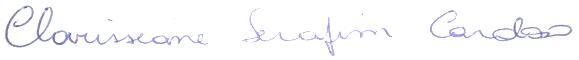 Clarisseane Serafim Cardoso